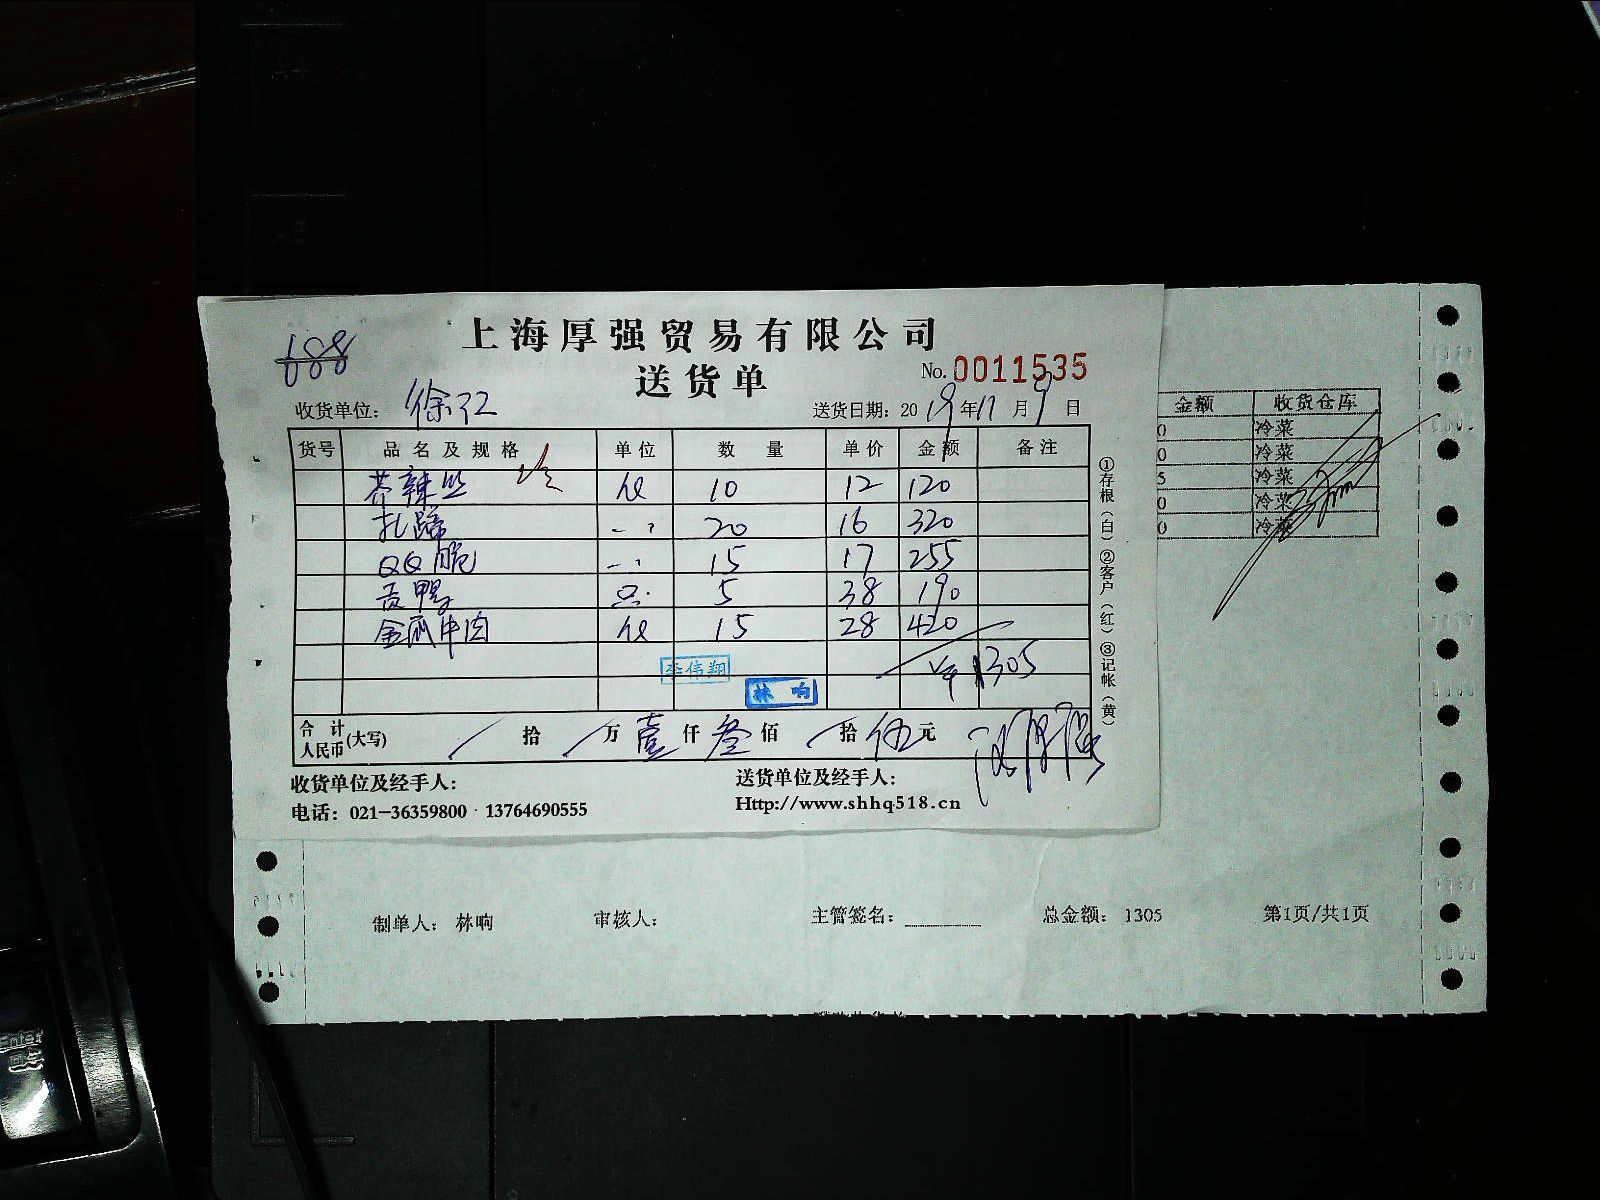 688
上海厚强贸易有限公司
送货单
No. 0011535
收货单位： 徐汇
送货日期：2019年11月9日
货号 品名及规格 单位 数量 单价 金额 备注
芥辣丝 10 12 120
扎蹄 20 16 320
QQ脆 15 17 255
贡鸭 只 5 38 190
金钱牛肉 15 28 420
李伟翔
林响
¥1305
合计人民币(大写) 拾 万 壹 仟 叁 佰 拾 伍 元
收货单位及经手人：
送货单位及经手人：
电话：021-36359800 13764690555
Http://www.shhq518.cn
①存根（白）②客户（红）③记帐（黄）
金额 收货仓库
0 冷菜
0 冷菜
5 冷菜
0 冷菜
0 冷菜
制单人： 林响 审核人： 主管签名： 总金额： 1305 第1页/共1页
Enter